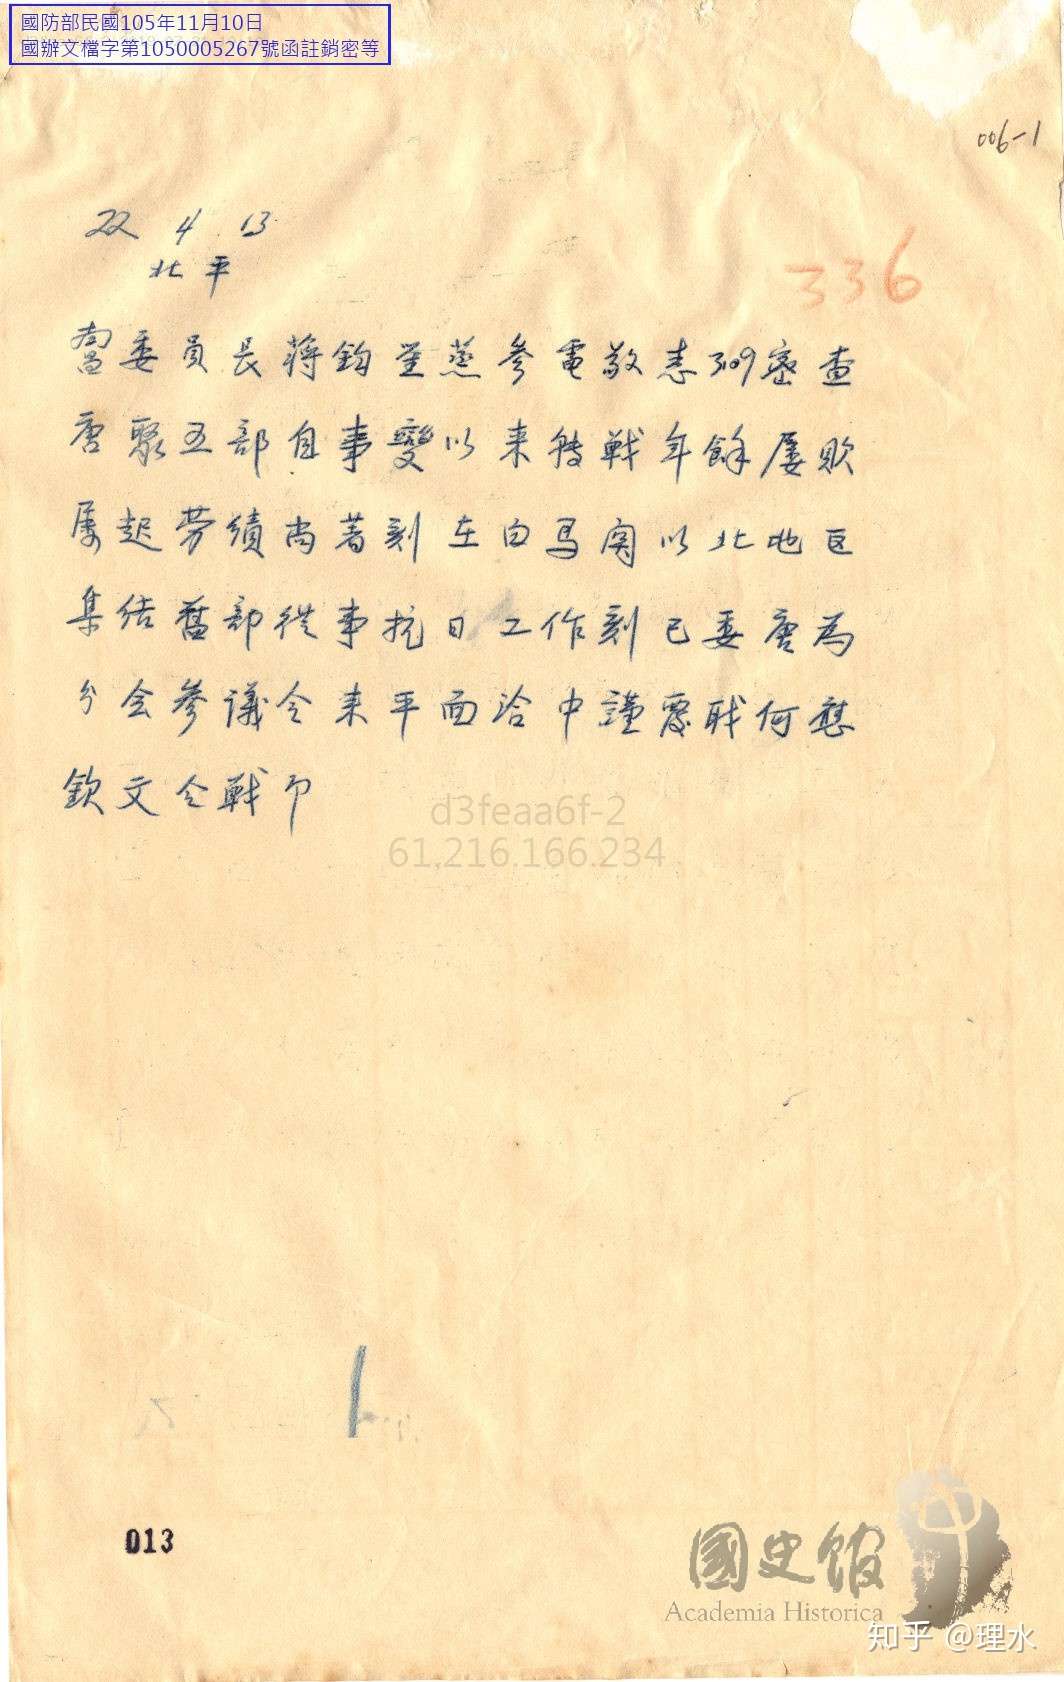 國防部民國105年11月10日
國辦文檔字第1050005267號函註銷密等
006-1
22 4 13
北平
336
南昌委員長蔣鈞堂蒸參電敬悉3709密查
唐聚五部自事變以来轉戰年餘屢敗
屢起劳績尚著刻在白馬関以北地区
集结舊部從事抗日工作刻已委唐為
分会參議令来平面洽中謹覆职何應
欽文令戰印
d3feaa6f-2
61.216.166.234
013
國史館
Academia Historica
知乎 @理水